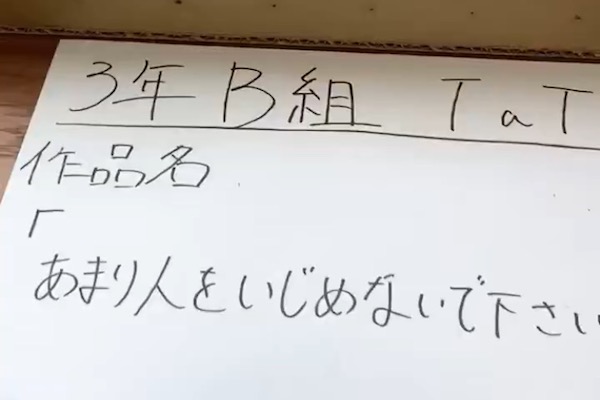 3年B組 TaT
作品名
「
あまり人をいじめないで下さい